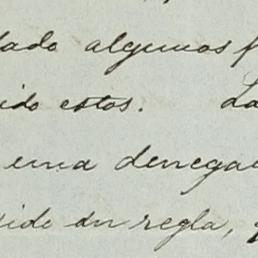 dado algunos f
ido estos. La
una denega
ide en regla,